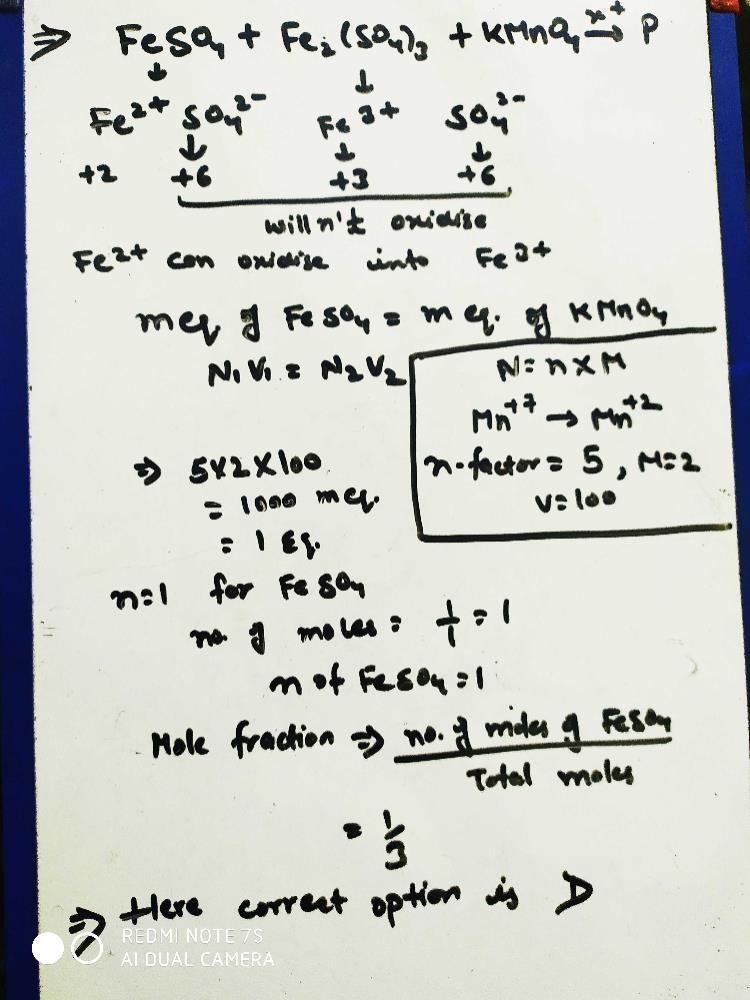 ⇒ FeSO₄ + Fe₂(SO₄)₃ + KMnO₄ →ˣ⁺ P
↓ ↓
Fe²⁺ SO₄²⁻ Fe³⁺ SO₄²⁻
↓ ↓ ↓
+2 +6 +3 +6
will n't oxidise
Fe²⁺ can oxidise into Fe³⁺
meq. of FeSO₄ = m eq. of KMnO₄
N₁V₁ = N₂V₂
N = n × M
Mn⁺⁷ → Mn⁺²
n-factor = 5, M=2
V=100
⇒ 5×2×100
= 1000 meq.
= 1 Eq.
n=1 for FeSO₄
no. of moles = 1/1 = 1
n of FeSO₄ = 1
Mole fraction ⇒ no. of moles of FeSO₄
Total moles
= 1/3
⇒ Here correct option is D
REDMI NOTE 7S
AI DUAL CAMERA